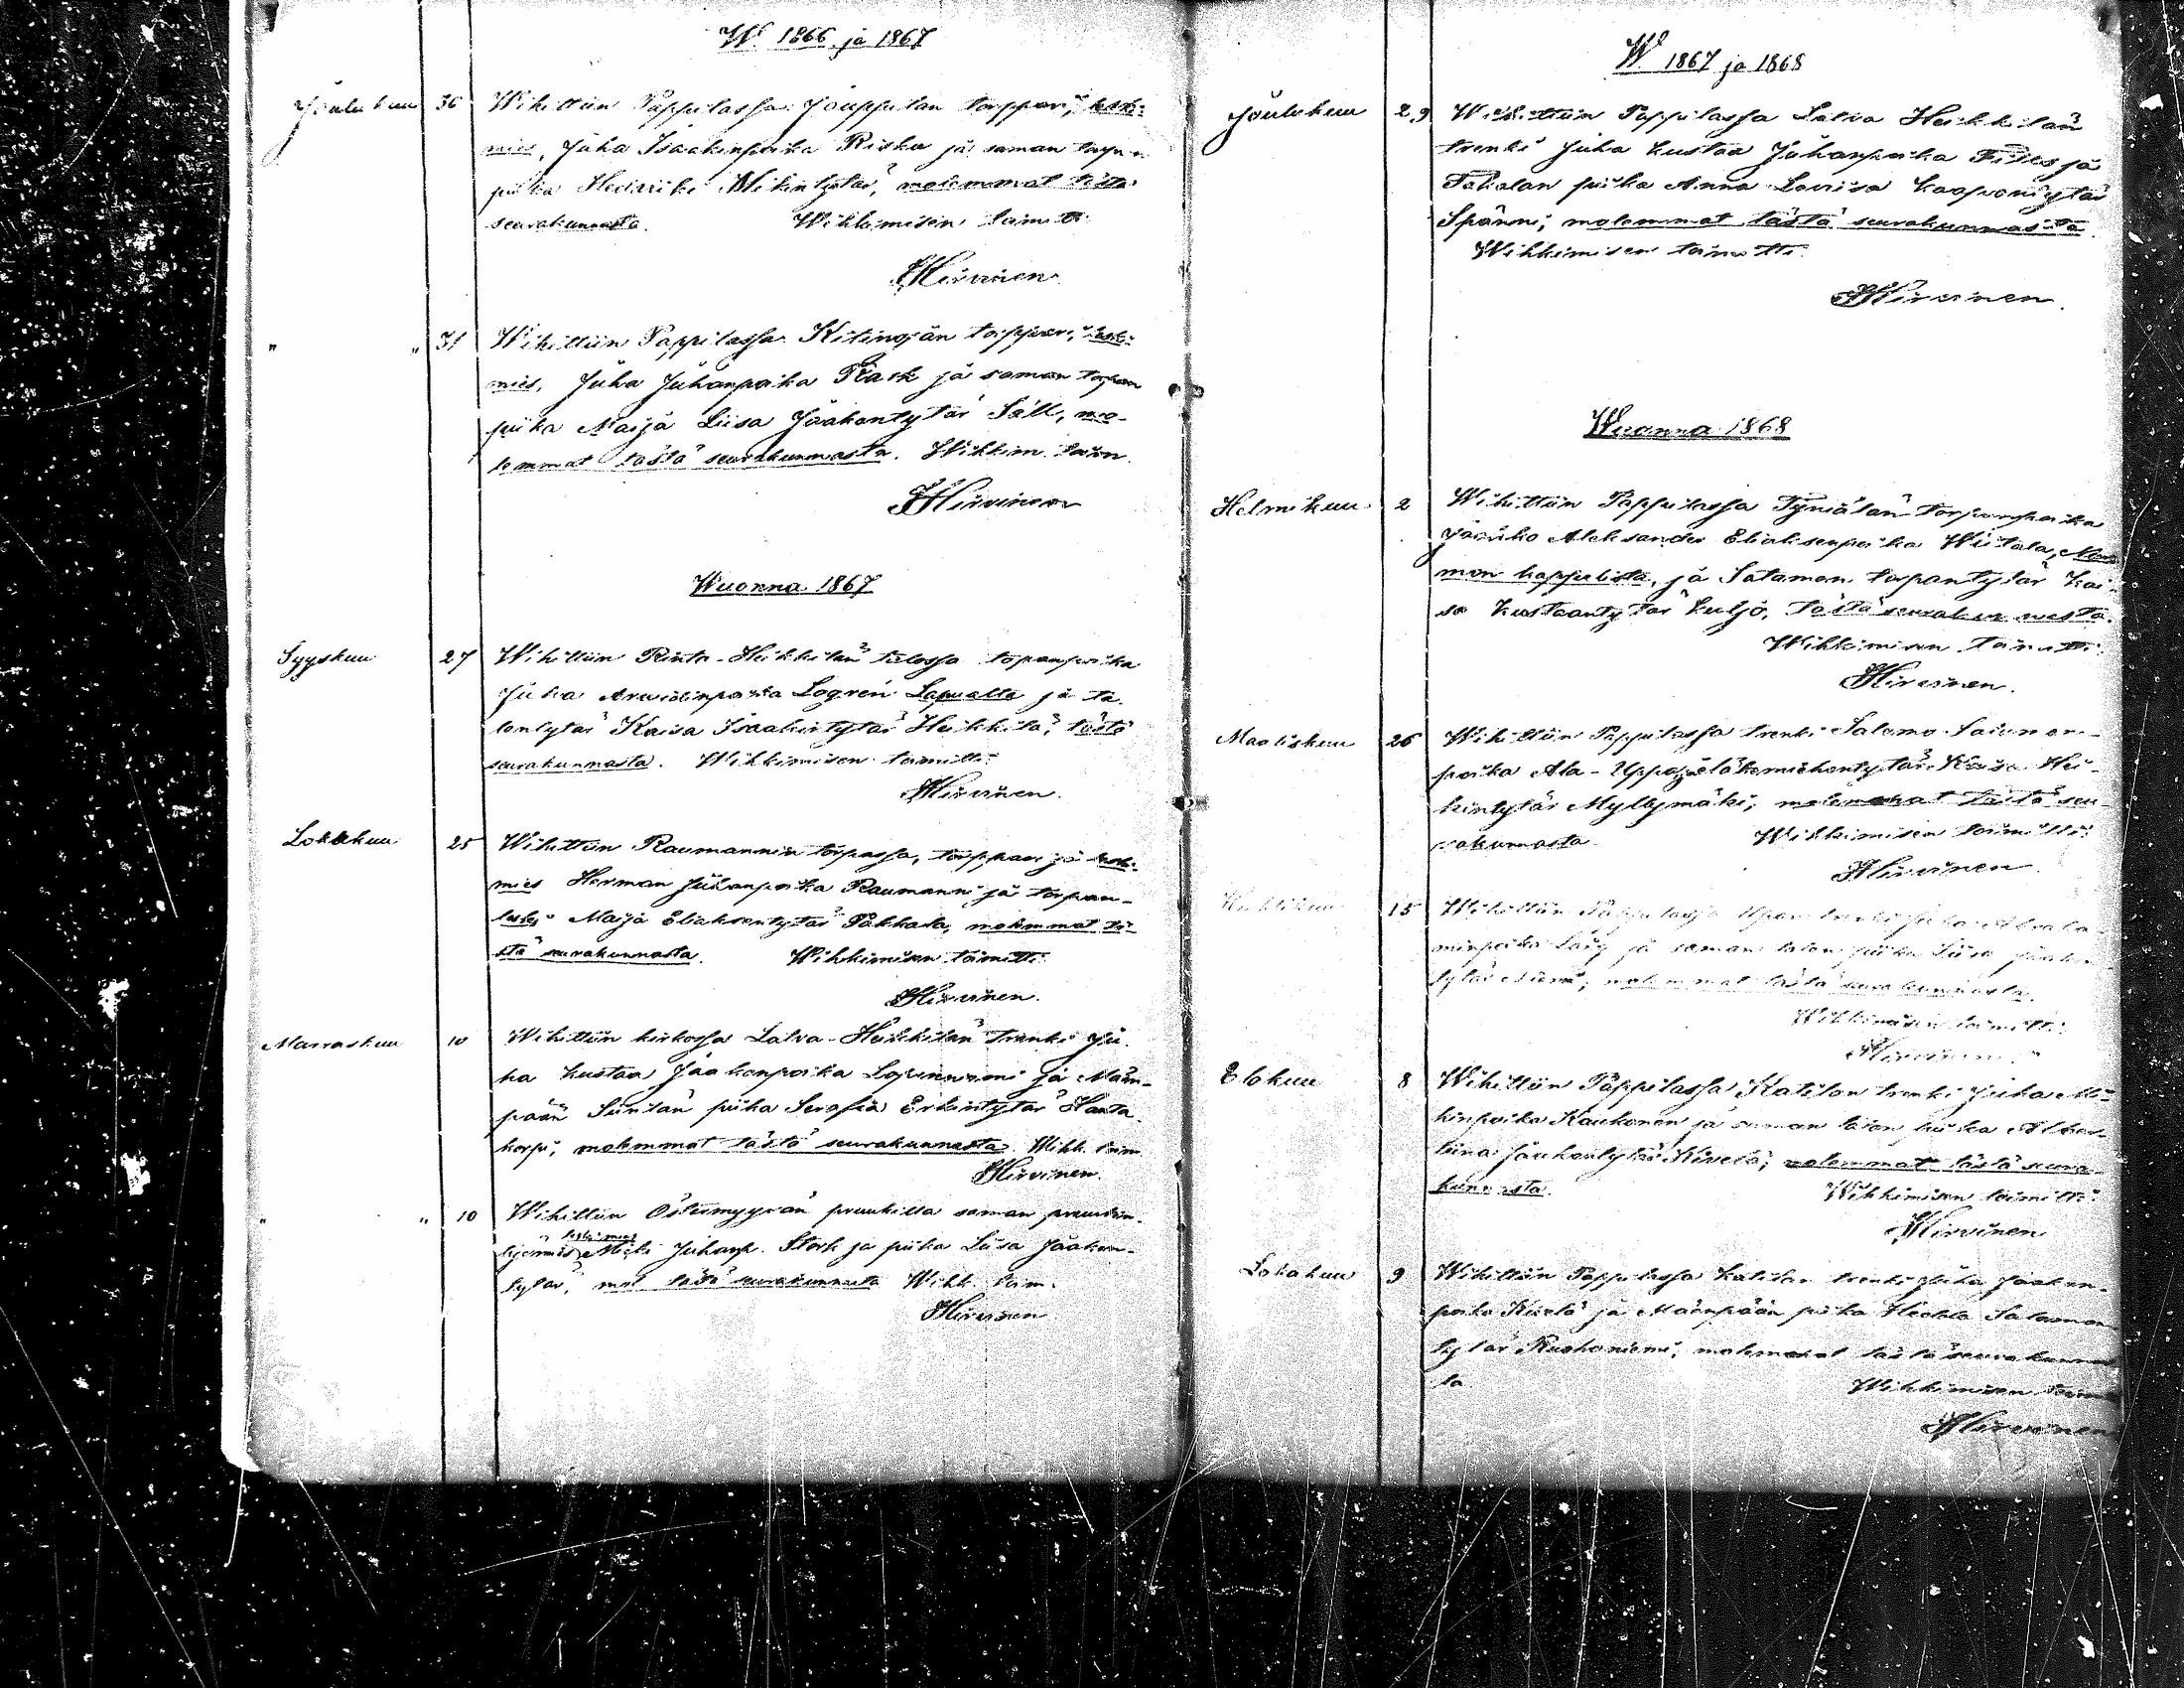 W. 1866 ja 1867
Joulukuu 30 Wihittiin Pappilassa Jouppilan torppari, lesk-
mies, Juha Isaakinpoika Risku ja saman torpan
piika Hedriiki Mikintytär, molemmat tästä
seurakunnasta. Wihkimisen toimitti
Hirvinen.
" " 31 Wihittiin Pappilassa Kitinojan torppari, lesk-
mies, Juha Juhanpoika Rask ja saman torpan
piika Maija Liisa Jaakontytär Säll, mo-
lemmat tästä seurakunnasta. Wihkim. toim.
Hirvinen
Wuonna 1867
Syyskuu 27 Wihittiin Rinta-Heikkilän talossa torpanpoika
Juha Arwidinpoika Logrén Lapualta ja ta-
lontytär Kaisa Isaakintytär Heikkilä, tästä
seurakunnasta. Wihkimisen toimitti
Hirvinen.
Lokakuu 25 Wihittiin Raumannin torpassa, torppari ja lesk-
mies Herman Juhanpoika Raumanni ja torpan-
leski Maija Eliaksentytär Pakkala, molemmat tä-
stä seurakunnasta. Wihkimisen toimitti
Hirvinen.
Marraskuu 10 Wihittiin kirkossa Latva-Heikkilän trenki Ju-
ha Kustaa Jaakonpoika ja Mäen-
pään Siirilän piika Serafia Erkintytär Hanta
korpi, molemmat tästä seurakunnasta. Wihk. toim.
Hirvinen.
" " 10 Wihittiin Östermyyrän pruukilla saman pruukin
leskimies
Juhanp. Stork ja piika Liisa Jaakon-
tytär, mol. tästä seurakunnasta Wihk. toim.
Hirvinen
W. 1867 ja 1868
Joulukuu 29 Wihittiin Pappilassa Latva Heikkilän
trenki Juha Kustaa Juhanpoika ja
piika Anna Loviisa Kaaponitytär
Spänni, molemmat tästä seurakunnasta.
Wihkimisen toimitti
Hirvinen.
Wuonna 1868
Helmikuu 2 Wihittiin Pappilassa Tyniälän torpanpoika
Jaakko Aleksander Eliaksenpoika Wiitala,
mon kappelista, ja Sataman torpantytär Kai-
sa Kustaantytär Kuljo, tästä seurakunnasta.
Wihkimisen toimitti
Hirvinen.
Maaliskuu 26 Wihittiin Pappilassa trenki Salomo
poika Ala-Uppa ja eläkemiehentytär Kaisa Hei-
kintytär Myllymäki, molemmat tästä seu-
rakunnasta. Wihkimisen toimitti
Hirvinen
Huhtikuu 15 Wihittiin Pappilassa trenki Juha
minpoika ja saman talon piika Liisa Jaakon-
tytär Niemi, molemmat tästä seurakunnasta.
Wihkimisen toimitti
Hirvinen.
Elokuu 8 Wihittiin Pappilassa Katilan trenki Juha Mi-
kinpoika Kaukonen ja saman talon piika Alber-
tiina Jaakontytär Kivelä, molemmat tästä seura-
kunnasta. Wihkimisen toimitti
Hirvinen
Lokakuu 9 Wihittiin Pappilassa Katilan trenki Juha Jaakon-
poika ja Mäenpään piika Salomon
tytär Ruohoniemi, molemmat tästä seurakunnas-
ta. Wihkimisen toim
Hirvinen